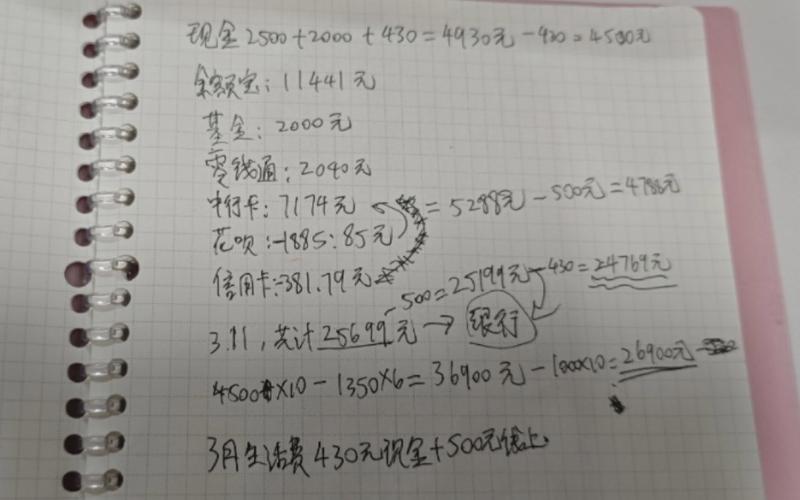 现金2500+2000+430=4930元-430=4500元
余额宝:11441元
基金:2000元
零钱通:2040元
中行卡:7174元 =5288元-500元=4788元
花呗:-1885.85元
信用卡:-381.79元
3.11,共计25699元→银行 -500=25199元-430=24769元
4500×10-1350×6=36900元-1000×10=26900元
3月生活费430元现金+500元线上